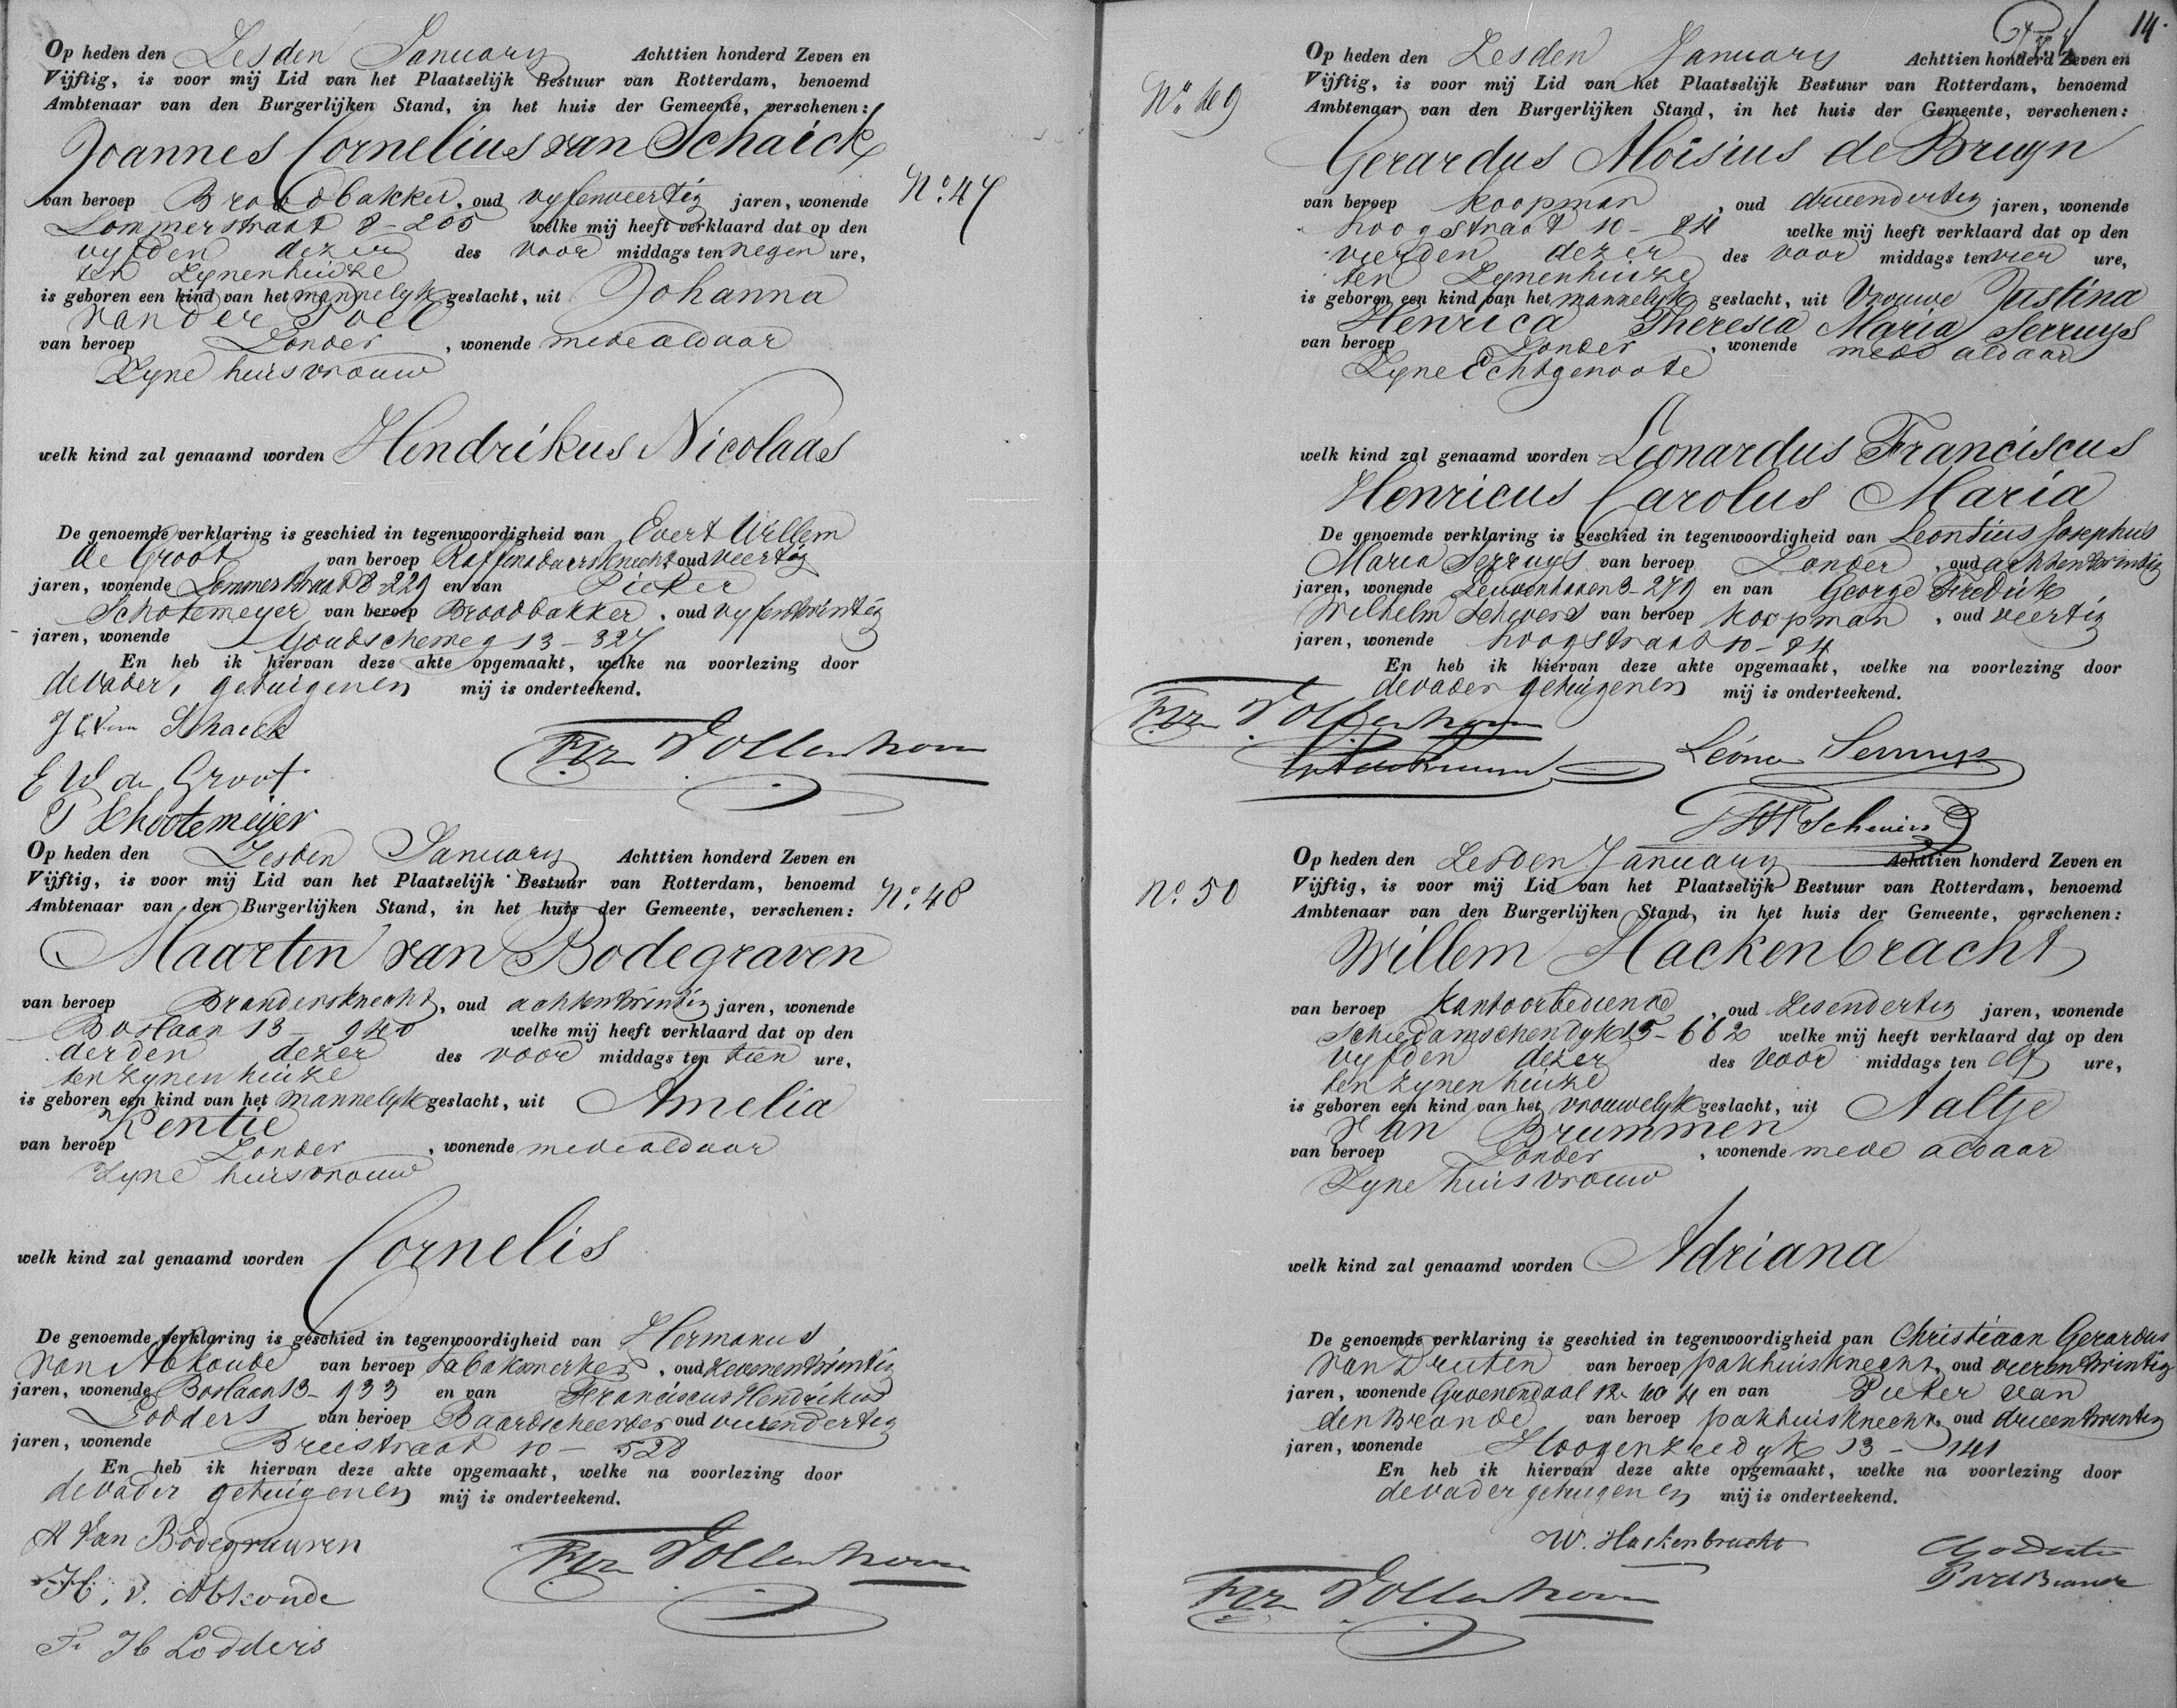 Op heden den Zesden January Achttien honderd Zeven en
Vijftig, is voor mij Lid van het Plaatselijk Bestuur van Rotterdam, benoemd
Ambtenaar van den Burgerlijken Stand, in het huis der Gemeente, verschenen:
Joannes Cornelius van Schaick
No. 47
van beroep Broodbakker, oud vyfenveertig jaren, wonende
Lommerstraat 8-205 welke mij heeft verklaard dat op den
vyfden dezer des voor middags ten negen ure,
ten zynenhuize
is geboren een kind van het mannelyk geslacht, uit Johanna
van der Poel
van beroep Zonder, wonende mede aldaar
Zyne huisvrouw
welk kind zal genaamd worden Hendrikus Nicolaas
De genoemde verklaring is geschied in tegenwoordigheid van Evert Willem
de Groot van beroep Raffinadeursknecht oud veertig
jaren, wonende Lommerstraat 8-229 en van Pieter
Schotemeyer van beroep Broodbakker, oud vyfentwintig
jaren, wonende Goudscheweg 13-327
En heb ik hiervan deze akte opgemaakt, welke na voorlezing door
de vader, getuigen en mij is onderteekend.
J C van Schaick
E W de Groot
P Schootemeijer
Op heden den Zesden January Achttien honderd Zeven en
Vijftig, is voor mij Lid van het Plaatselijk Bestuur van Rotterdam, benoemd
Ambtenaar van den Burgerlijken Stand, in het huis der Gemeente, verschenen:
No. 48
Maarten van Bodegraven
van beroep Brandersknecht, oud achtentwintig jaren, wonende
Boslaan 13-940 welke mij heeft verklaard dat op den
derden dezer des voor middags ten tien ure,
ten zynen huize
is geboren een kind van het mannelyk geslacht, uit Amelia
Kentie
van beroep Zonder, wonende mede aldaar
Zyne huisvrouw
welk kind zal genaamd worden Cornelis
De genoemde verklaring is geschied in tegenwoordigheid van Hermanus
van Abkoude van beroep tabakswerker, oud zevenentwintig
jaren, wonende Boslaan 13-933 en van Franciscus Hendrikus
Lodders van beroep Baardscheerder oud vierendertig
jaren, wonende Breestraat 10-528
En heb ik hiervan deze akte opgemaakt, welke na voorlezing door
de vader getuigen en mij is onderteekend.
M Van Bodegraven
H. v. Abkoude
F. H Lodders
14.
Op heden den Zesden January Achttien honderd Zeven en
No 49
Vijftig, is voor mij Lid van het Plaatselijk Bestuur van Rotterdam, benoemd
Ambtenaar van den Burgerlijken Stand, in het huis der Gemeente, verschenen:
Gerardus Aloisius de Bruyn
van beroep Koopman, oud drieendertig jaren, wonende
Hoogstraat 10-84 welke mij heeft verklaard dat op den
vierden dezer des voor middags ten vier ure,
ten Zynenhuize
is geboren een kind van het mannelyk geslacht, uit Vrouwe Justina
Henrica Theresia Maria Serruys
van beroep Zonder, wonende mede aldaar
Zyne Echtgenoote
welk kind zal genaamd worden Leonardus Franciscus
Henricus Carolus Maria
De genoemde verklaring is geschied in tegenwoordigheid van Leontius Josephus
Maria Serruys van beroep Zonder, oud achtentwintig
jaren, wonende Leuvenhaven 3-279 en van George Fredrik
Wilhelm Schevers van beroep Koopman, oud veertig
jaren, wonende Hoogstraat 10-84
En heb ik hiervan deze akte opgemaakt, welke na voorlezing door
de vader getuigen en mij is onderteekend.
Serruys
Op heden den Zesden January Achttien honderd Zeven en
No. 50
Vijftig, is voor mij Lid van het Plaatselijk Bestuur van Rotterdam, benoemd
Ambtenaar van den Burgerlijken Stand, in het huis der Gemeente, verschenen:
Willem Hackenbracht
van beroep Kantoorbediende, oud zesendertig jaren, wonende
Schiedamschendyk 15-662 welke mij heeft verklaard dat op den
vyfden dezer des voor middags ten elf ure,
ten zynen huize
is geboren een kind van het vrouwelyk geslacht, uit Aaltje
van Brummen
van beroep Zonder, wonende mede aldaar
Zyne huisvrouw
welk kind zal genaamd worden Adriana
De genoemde verklaring is geschied in tegenwoordigheid van Christiaan Gerardus
van Druten van beroep pakhuisknecht, oud vierentwintig
jaren, wonende Groenendaal 12-404 en van Pieter van
den Brande van beroep pakhuisknecht, oud drieentwintig
jaren, wonende Hoogenzeedyk 13-141
En heb ik hiervan deze akte opgemaakt, welke na voorlezing door
de vader getuigen en mij is onderteekend.
W. Hackenbracht